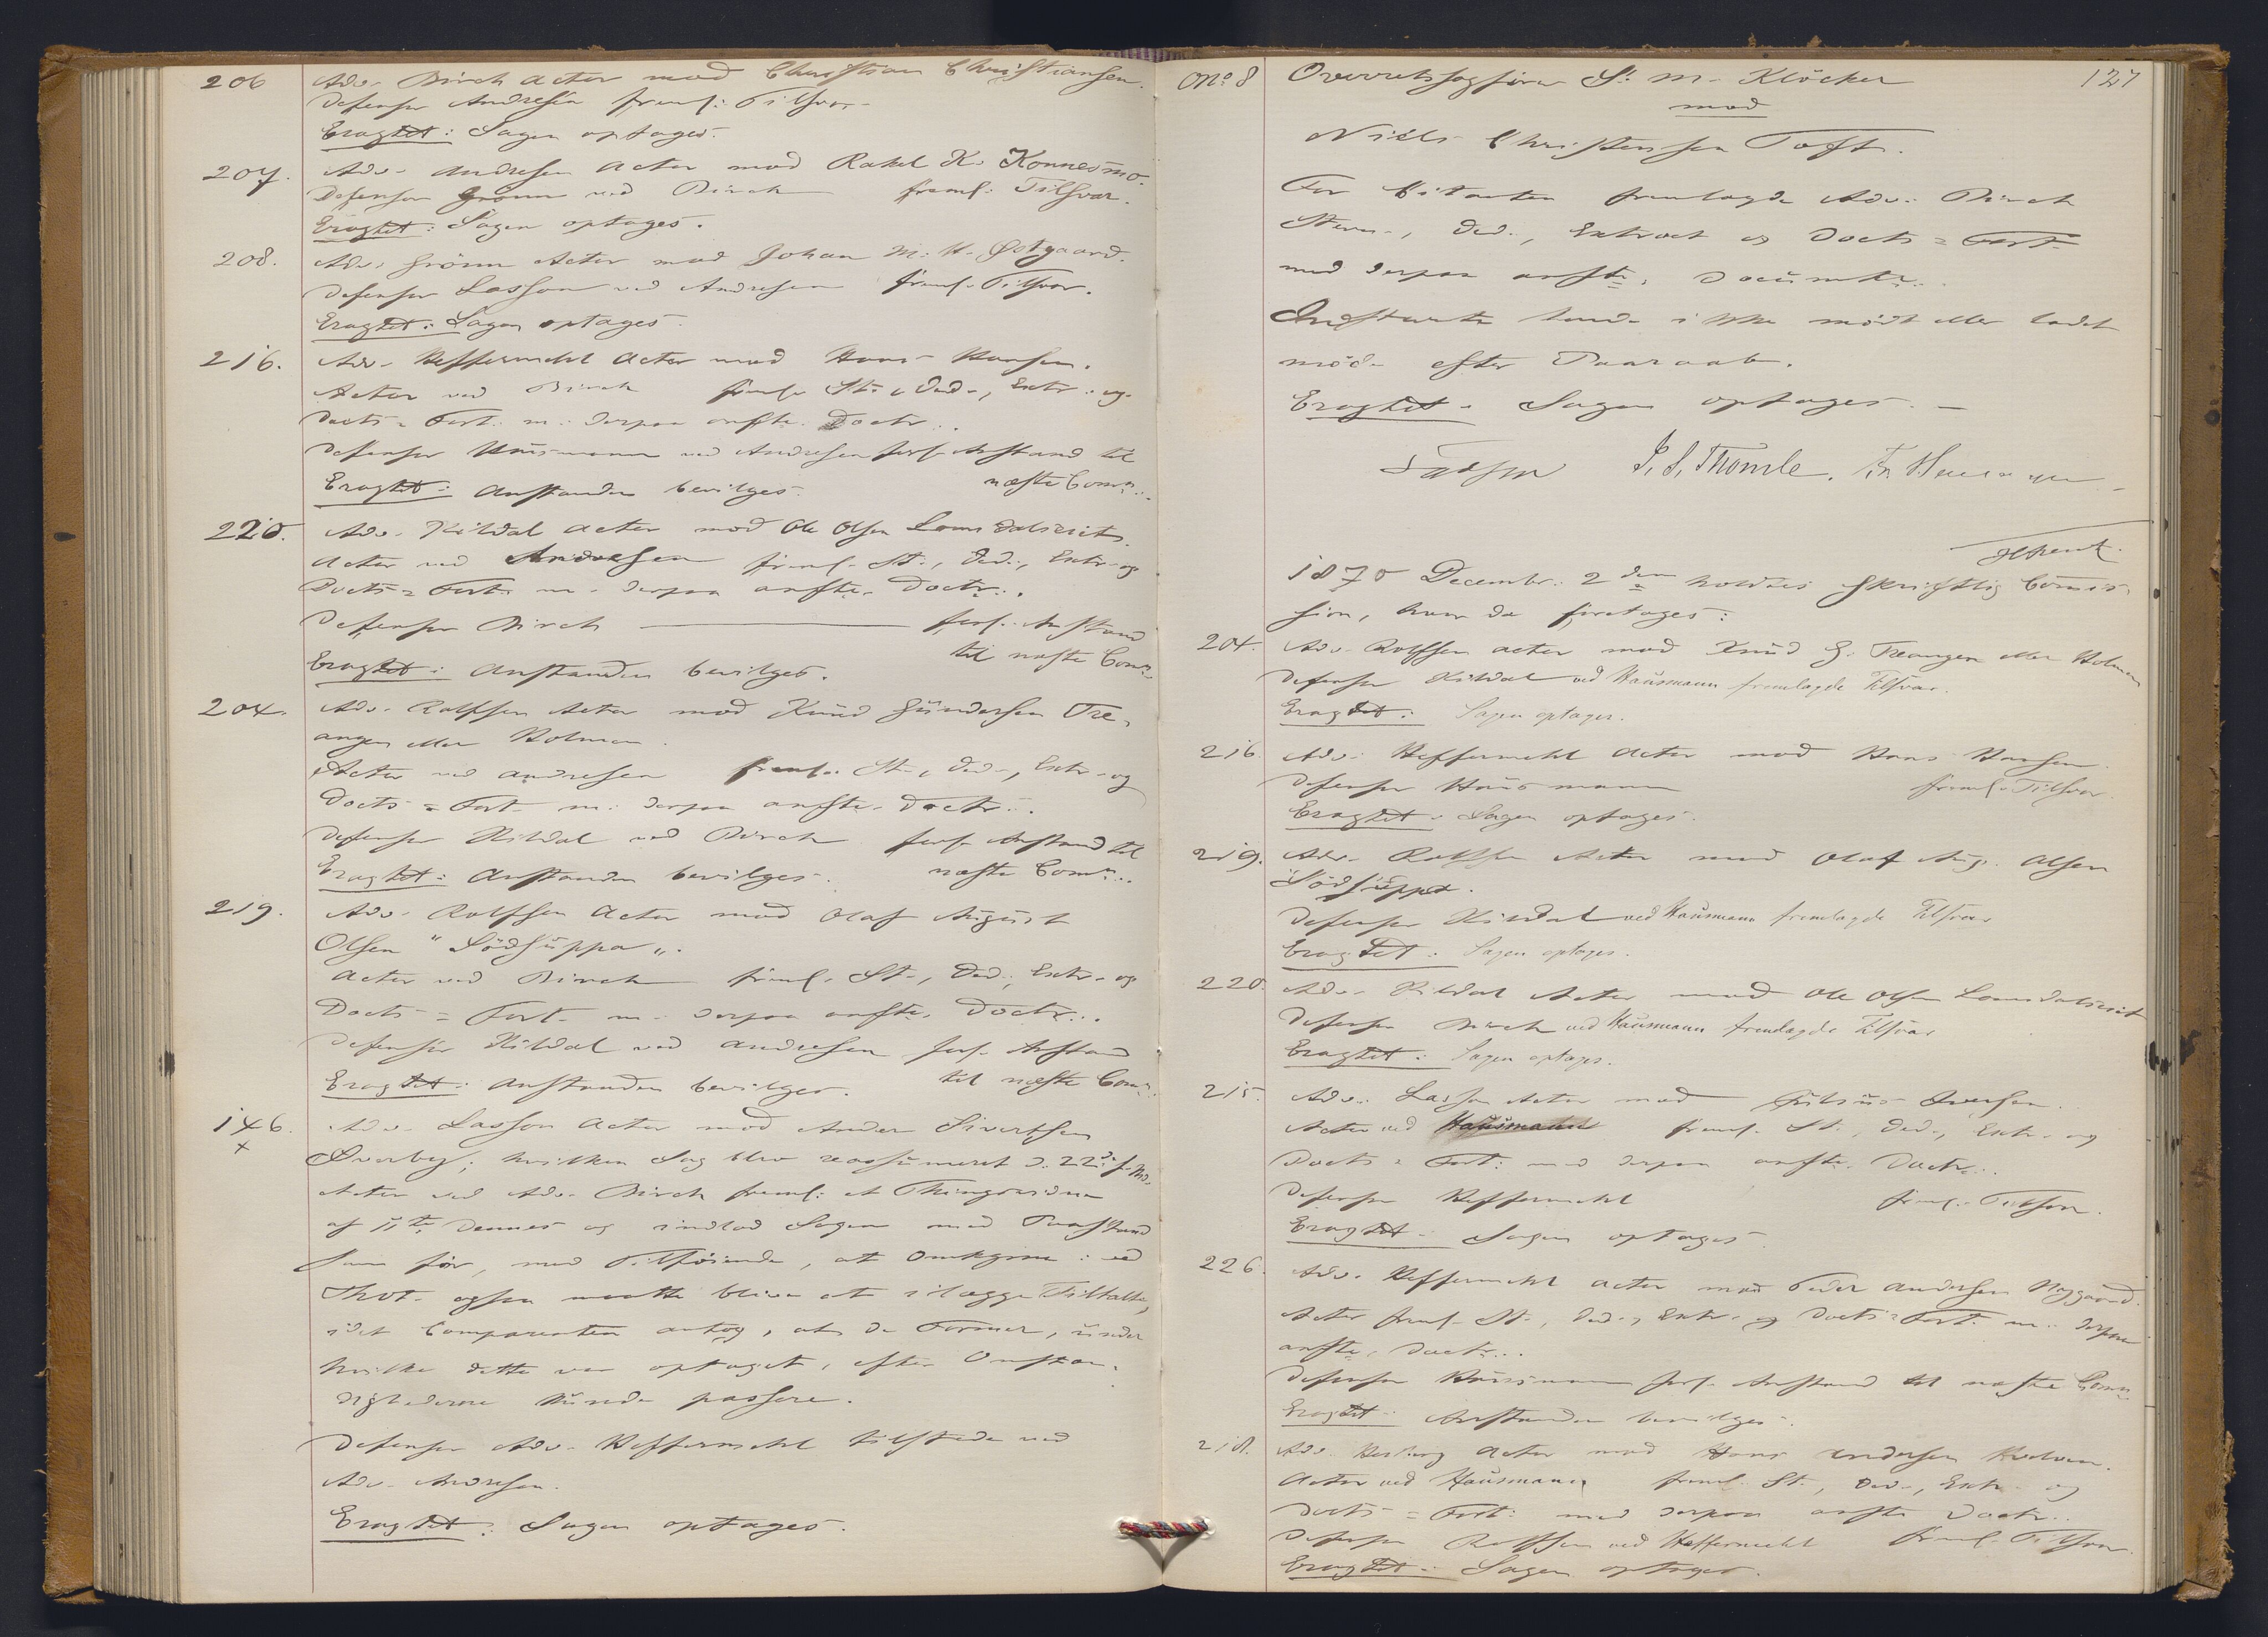 206 Adv. Birch Actor mod Christian Christiansen.
Defensor Andresen freml: Tilsvar.
Eragtet: Sagen optages.
207. Adv. Andresen Actor mod Rakel K. Konnesmo.
Defensor Grönn ved Birch freml: Tilsvar.
Eragtet: Sagen optages.
208. Adv. Grönn Actor mod Johan M. H. Østgaard.
Defensor Lasson ved Andresen freml. Tilsvar.
Eragtet: Sagen optages.
216. Adv. Heffermehl Actor mod Hans Hansen.
Actor ved Birch freml. St., Ded., Extr. og
Docts = Fort. m. derpaa anfte. Doctr..
Defensor Hausmann ved Andresen forl. Anstand til
næste Comn..
Eragtet: Anstanden bevilges.
220. Adv. Kildal Actor mod Ole Olsen Lomsdalseiet.
Actor ved Andresen freml. St., Ded., Extr. og
Docts = Fort. m. derpaa anfte. Doctr..
Defensor Birch forl. Anstand
til næste Comn.
Eragtet: Anstanden bevilges.
204. Adv. Rolfsen Actor mod Knud Gundersen Tre-
angen eller Holmen.
Actor ved Andresen freml. St., Ded., Extr. og
Docts = Fort. m. derpaa anfte. Doctr..
Defensor Kildal ved Birch forl. Anstand til
næste Comn..
Eragtet: Anstanden bevilges.
219. Adv. Rolfsen Actor mod Olaf August
Olsen "Södsuppa".
Actor ved Birch freml. St., Ded., Extr. og
Docts = Fort. m. derpaa anfte. Doctr..
Defensor Kildal ved Andresen forl. Anstand
til næste Comn.
Eragtet: Anstanden bevilges.
146. Adv. Lasson Actor mod Anders Sivertsen
x
Sverby; hvilken Sag blev reassumeret d. 22de f. Md.
Actor ved Adv. Birch freml: et Thingsvidne
af 11te dennes og indlod Sagen med Paastand
som för, med Tilföiende, at Omkgnre: ved
Thvt. ogsaa maatte blive at ilægge Tiltalte,
idet Comparenten antog, at de Former, under
hvilke dette var optaget, efter Omstæn-
dighederne kunde passere.
Defensor Adv. Heffermehl tilstede ved
Adv. Andresen.
Eragtet: Sagen optages.
No 8 Overretssagförer S. M. Klöcker 127
mod
Niels Christensen Toft.
For Citanten fremlagde Adv. Birch
Stevn., Ded., Extract og Docts = Fort.
med derpaa anfte. Documtr..
Indstevnte havde ikke mödt eller ladet
möde efter Paaraab.
Eragtet: Sagen optages.
J. S. Thomle.
1870 Decembr. 2den holdtes skriftlig Comis-
sion, hvor da foretoges:
204. Adv. Rolfsen Actor mod Knud G. Treangen eller Holmen
Defensor Kildal ved Hausmann fremlagde Tilsvar.
Eragtet: Sagen optages.
216 Adv. Heffermehl Actor mod Hans Hansen.
Defensor Hausmann freml. Tilsvar.
Eragtet: Sagen optages.
219. Adv. Rolfsen Actor mod Olaf Aug. Olsen
Södsuppa.
Defensor Kildal ved Hausmann fremlagde Tilsvar
Eragtet: Sagen optages.
220. Adv. Kildal Actor mod Ole Olsen Lomsdalseiet
Defensor Birch ved Hausmann fremlagde Tilsvar
Eragtet: Sagen optages.
215. Adv. Lasson Actor mod Julius Iversen.
Actor ved Hausmann freml. St., Ded., Extr. og
Docts = Fort: med derpaa anfte. Doctr..
Defensor Heffermehl freml. Tilsvar.
Eragtet: Sagen optages.
226. Adv. Heffermehl Actor mod Peder Andersen Nygaard.
Actor freml. St., Ded., Extr. og Docts = Fort. m. derpaa
anfte. Doctr...
Defensor Hausmann forl. Anstand til næste Comn.
Eragtet: Anstanden bevilges.
218. Adv. Actor mod Hans Andersen
Actor ved Hausmann freml. St., Ded., Extr. og
Docts = Fort: med derpaa anfte Doctr..
Defensor Rolfsen ved Heffermehl freml. Tilsvar.
Eragtet: Sagen optages.